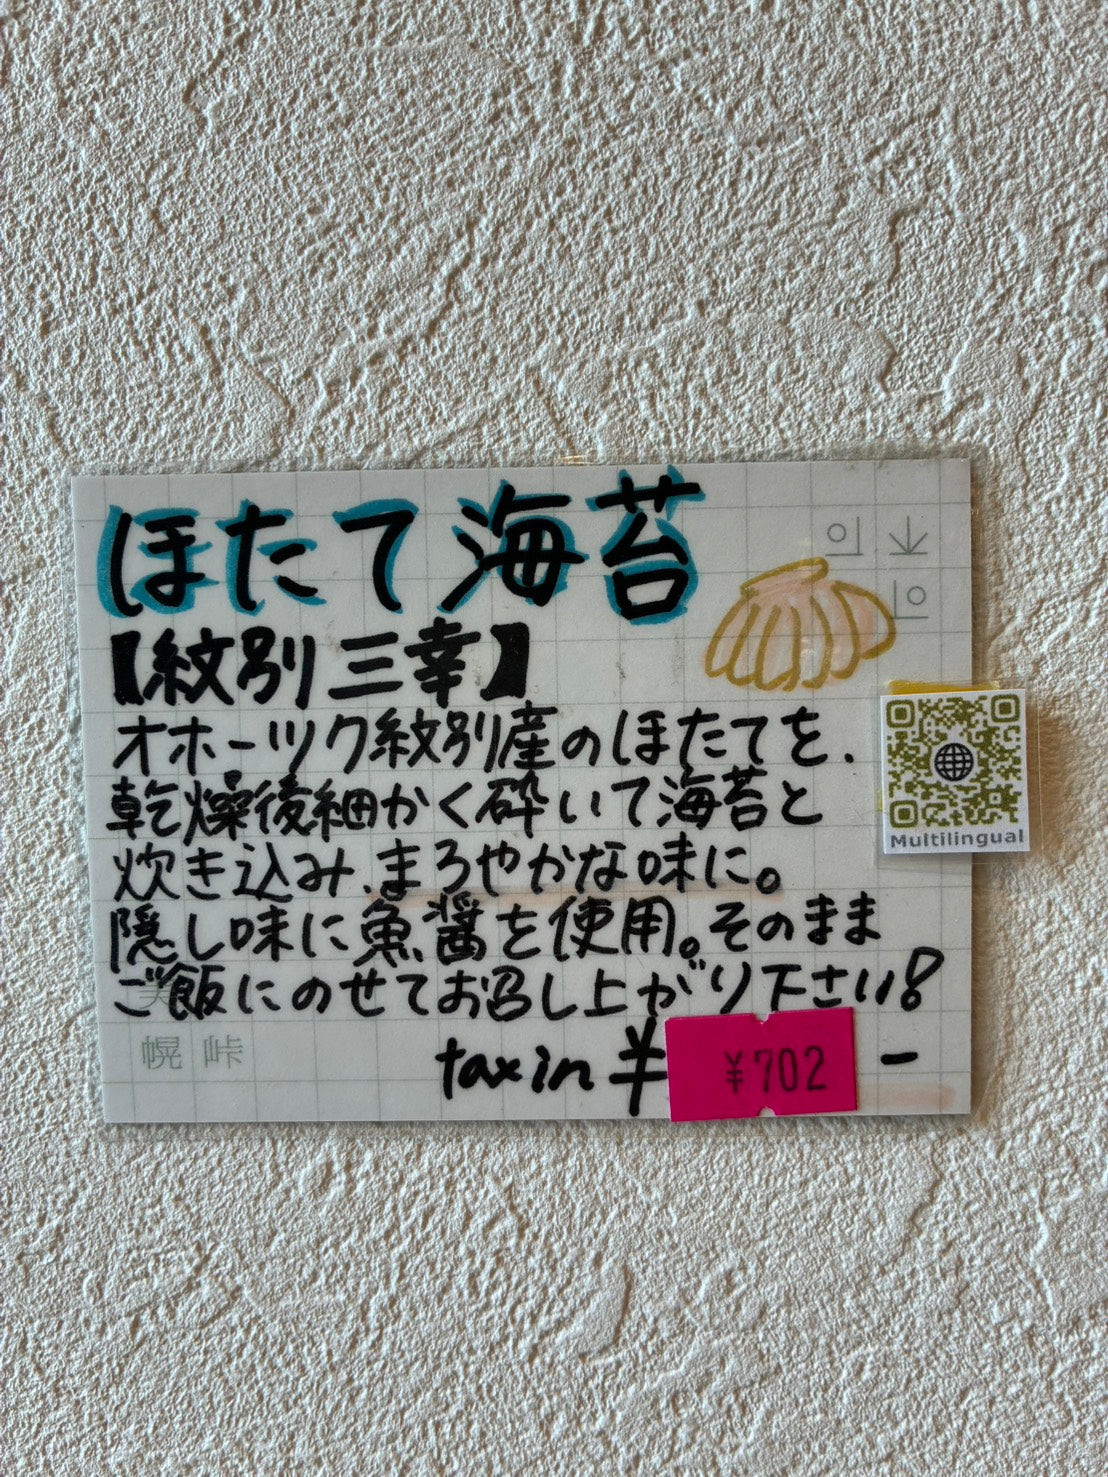 ほたて海苔
【紋別 三幸】
オホーツク紋別産のほたてを、
乾燥後細かく砕いて海苔と
炊き込み、まろやかな味に。
隠し味に魚醤を使用。そのまま
ご飯にのせてお召し上がり下さい!
tax in ¥ ¥702 -
Multilingual
幌 峠